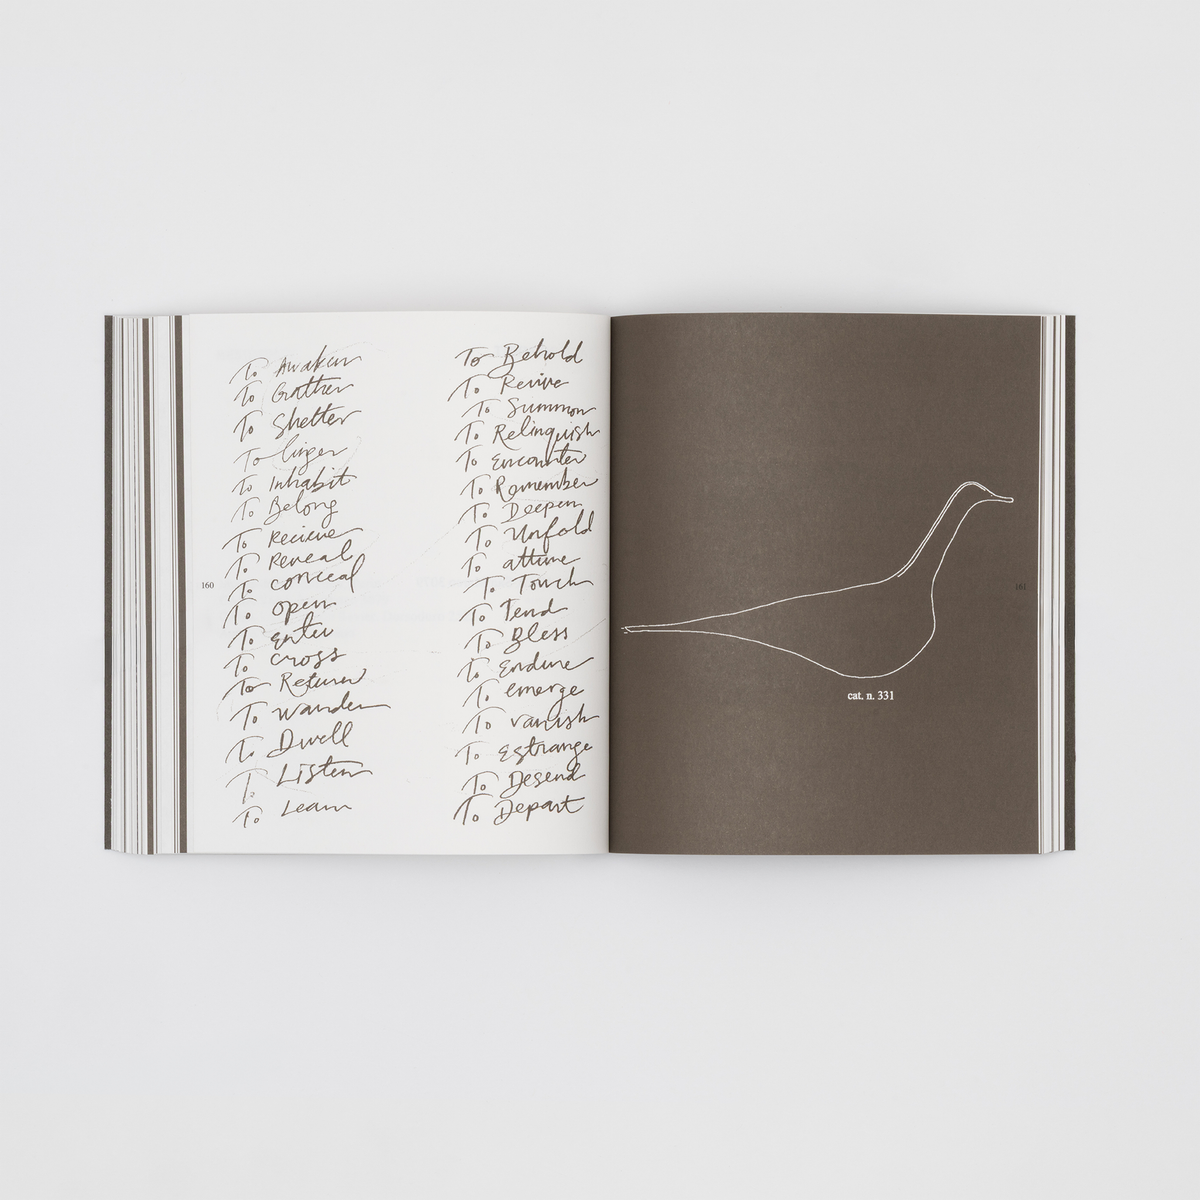 To Awaken
To Gather
To Shelter
To linger
To Inhabit
To Belong
To Recieve
To Reveal
To conceal
To open
To enter
To cross
To Return
To wander
To Dwell
To Listen
To Learn
160
To Behold
To Revive
To Summon
To Relinquish
To Encounter
To Remember
To Deepen
To Unfold
To attune
To Touch
To Tend
To Bless
To Endure
To emerge
To vanish
To Estrange
To Desend
To Depart
161
cat. n. 331